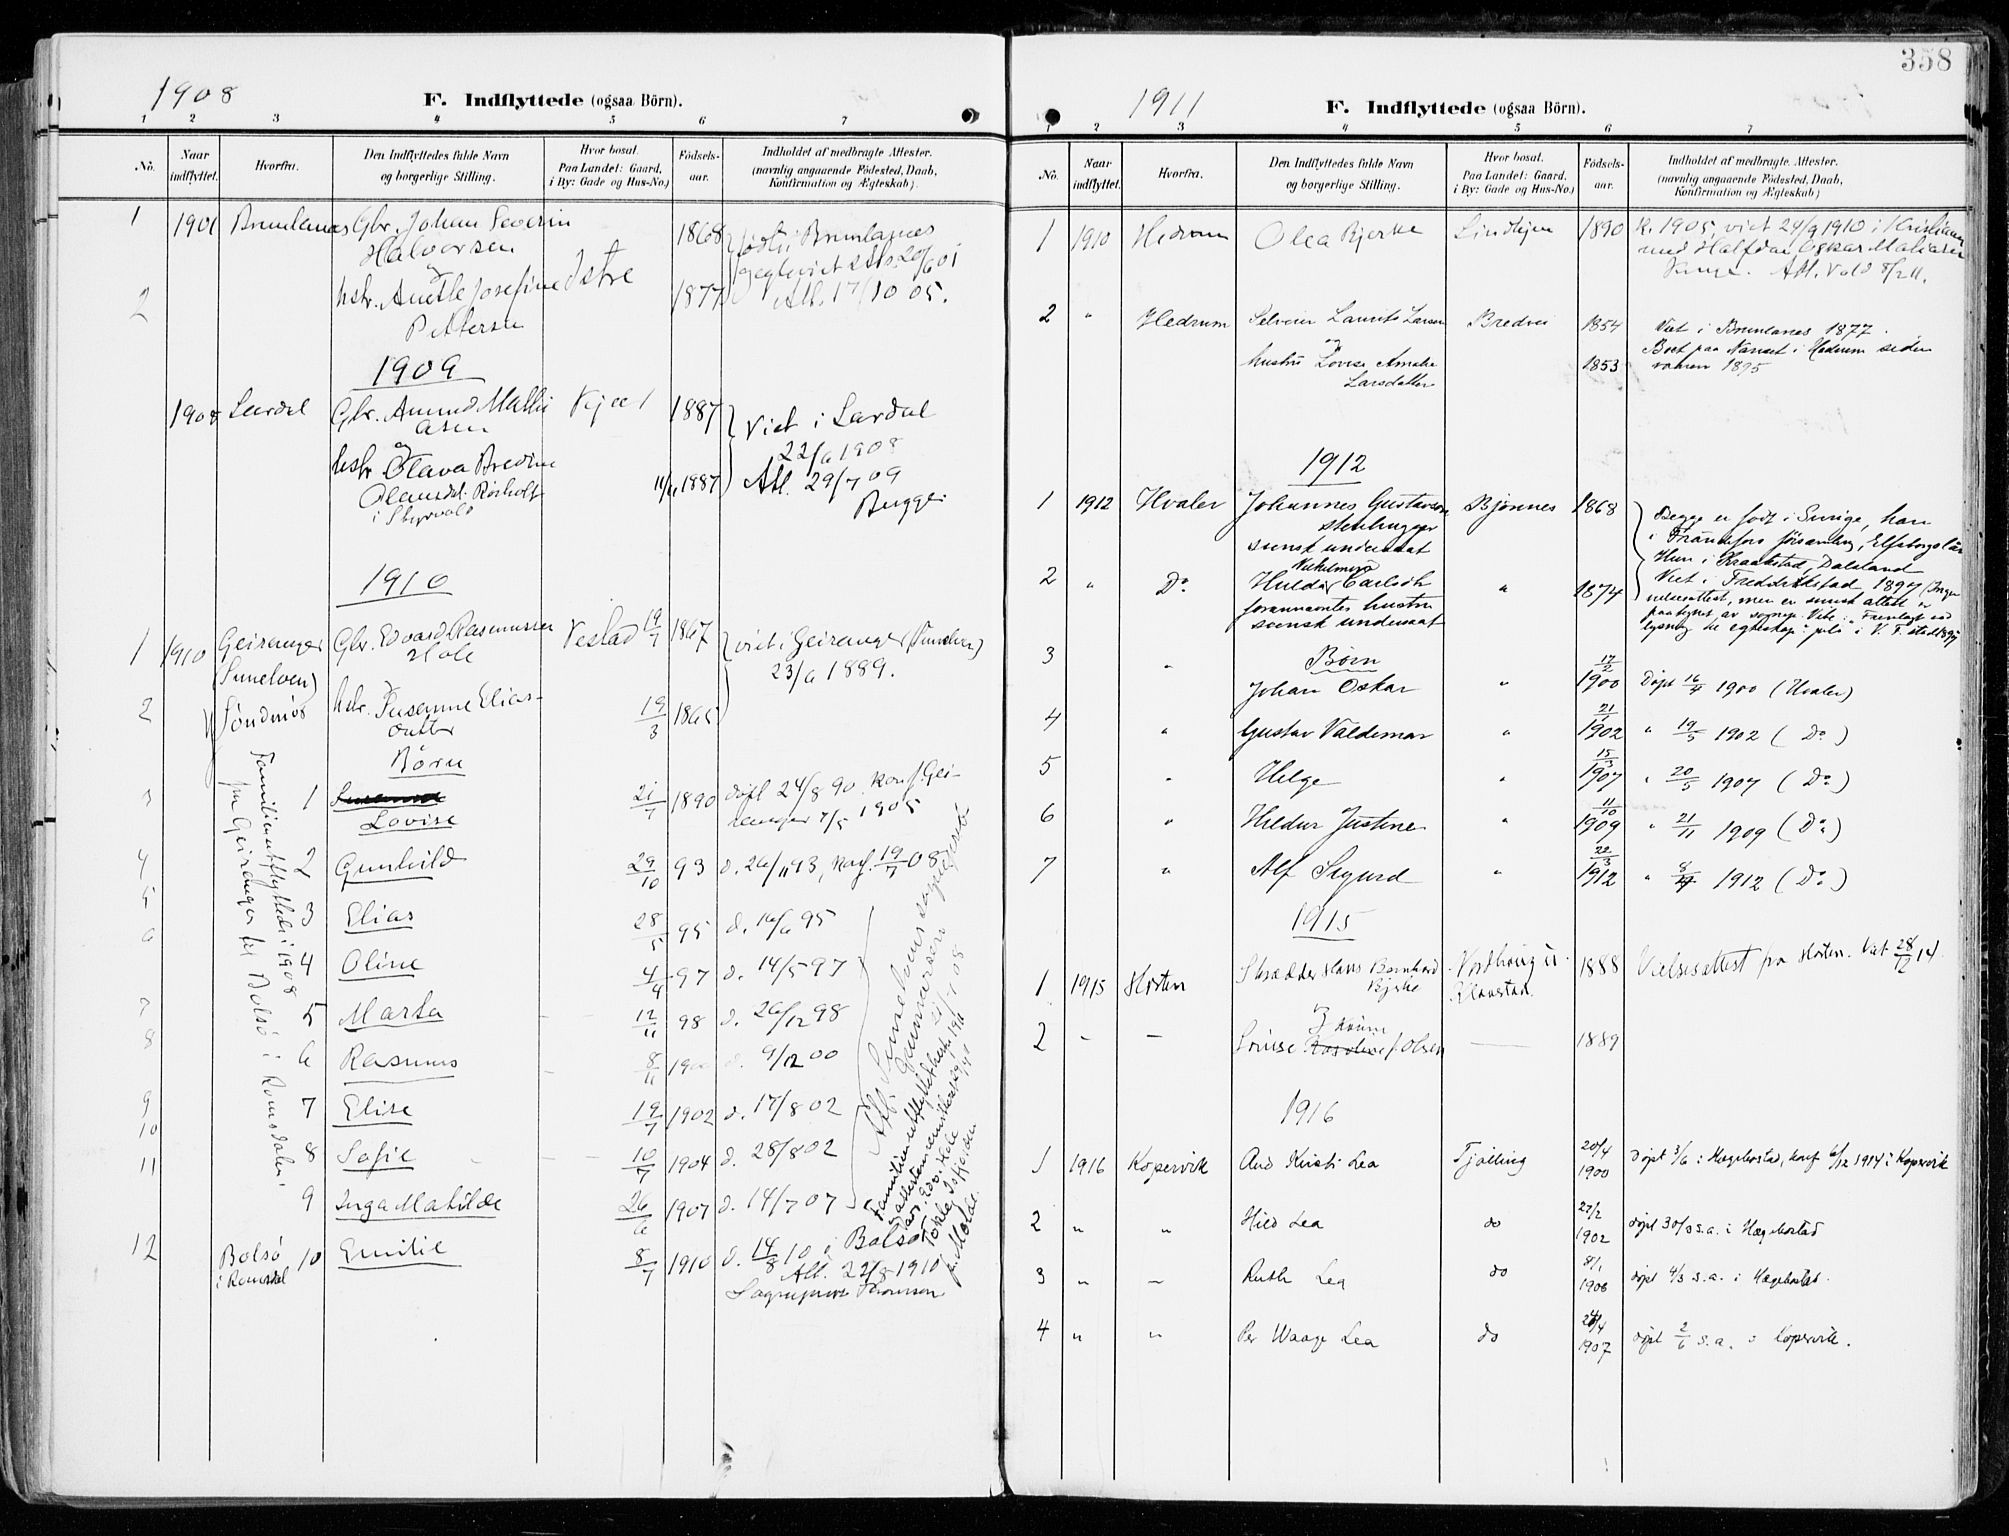 358
1908
F. Indflyttede (ogsaa Börn).
1 2 3 4 5 6 7
No.
Naar indflyttet.
Hvorfra.
Den Indflyttedes fulde Navn
og borgerlige Stilling.
Hvor bosat.
Paa Landet: Gaard,
i By: Gade og Hus-No.)
Fødsels-
aar.
Indholdet af medbragte Attester.
(navnlig angaaende Födested, Daab,
Konfirmation og Ægteskab).
1 1901 Brunlanes Gbr. Johan Severin 1868 født i Brunlanes
Halvorsen
2 hstr. Anette Josefine Istre 1877 Att. 17/10 05.
Pettersen
1909
1908 Lardal Gbr. Amund Mathi 1887 Viet i Lardal
asen 22/6 1908
hstr. Olava Bredine 11/11 1887 Att. 29/7 09
Olausdt. Risholt Bugge.
i Styrvold
1910
1 1910 Geiranger Gbr. Edvard Rasmussen Vestad 19/7 1867 viet i Geiranger (Sunelven)
Hole 23/6 1889.
(Sunelven)
2 Søndmør hstr. Susanne Elias- 19/3 1865
datter
Børn
3 1 Lovise 21/7 1890 døpt 24/8 90. Konf. Gei-
ranger 7/5 1905
4 2 Gunhild 29/10 93 d. 26/11 93, konf. 19/7 08
5 3 Elias 28/5 95 d. 16/6 95
6 4 Oline 4/4 97 d. 14/5 97
7 5 Marta 12/11 98 d. 26/12 98
8 6 Rasmus 8/11 1900 d. 9/12 00
9 7 Elise 19/7 1902 d. 17/8 02
10 8 Sofie 10/7 1904 d. 28/8 02
11 9 Inga Matilde 26/6 1907 d. 14/7 07
12 Bolsø 10 Emilie 8/7 1910 d. 14/8 10 i Bolsø
i Romsdal Att. 22/8 1910
Sogneprest
Familien utflyttede i 1908
fra Geiranger til Bolsø i Romsdalen
Att. Sunelvens sogneprest
Gunnarsen 21/7 08
1911
F. Indflyttede (ogsaa Börn).
1 2 3 4 5 6 7
No.
Naar
indflyttet.
Hvorfra.
Den Indflyttedes fulde Navn
og borgerlige Stilling.
Hvor bosat.
Paa Landet: Gaard,
i By: Gade og Hus-No.)
Fødsels-
aar.
Indholdet af medbragte Attester.
(navnlig angaaende Födested, Daab,
Konfirmation og Ægteskab).
1 1910 Hedrum Olea Bjerke Lindhjem 1890 k. 1905, viet 24/9 1910 i Kristiania
med Halfdan Oskar
Att. 8/2 11.
2 " Hedrum Selveier Laurits Larsen Bredvei 1854 Viet i Brunlanes 1877.
og
hustru Lovise Amalie 1853 Boet paa Nanset i Hedrum siden
Larsdatter vaaren 1895
1912
1 1912 Hvaler Johannes Gustavson Bjønnes 1868 Begge er født i Sverige, han
stenhugger
svensk undersaat
2 " Do Hulda Vilhelmina Carlsdtr " 1874 Viet i Fredrikstad 1897
forannævntes hustru
svensk undersaat
Børn
3 " Johan Oskar " 17/2 1900 Døpt 16/4 1900 (Hvaler)
4 " Gustav Valdemar " 21/1 1902 " 19/5 1902 (Do)
5 " Helge " 15/3 1907 " 20/5 1907 (Do)
6 " Hildur Justine " 11/10 1909 " 21/11 1909 (Do)
7 " Alf Sigurd " 22/3 1912 " 8/4 1912 (Do)
1915
1 1915 Horten Skrædder Hans Bernhard 1888 Vielsesattest fra Horten. Viet 28/12 14
Bjerke Klaastad.
2 - - Lovise f. Olsen 1889
1916
1 1916 Kopervik Aud Kirsti Lea Tjølling 20/4 1900 døpt 3/6 i Hægebostad, konf 6/12 1914 i Kopervik
2 " " Hild Lea do 27/2 1902 døpt 30/3 s.a. i Hægebostad
3 " " Ruth Lea do 8/1 1906 døpt 4/3 s.a. i Hægebostad.
4 " " Per Waage Lea do 1907 døpt 2/6 s.a. i Kopervik.